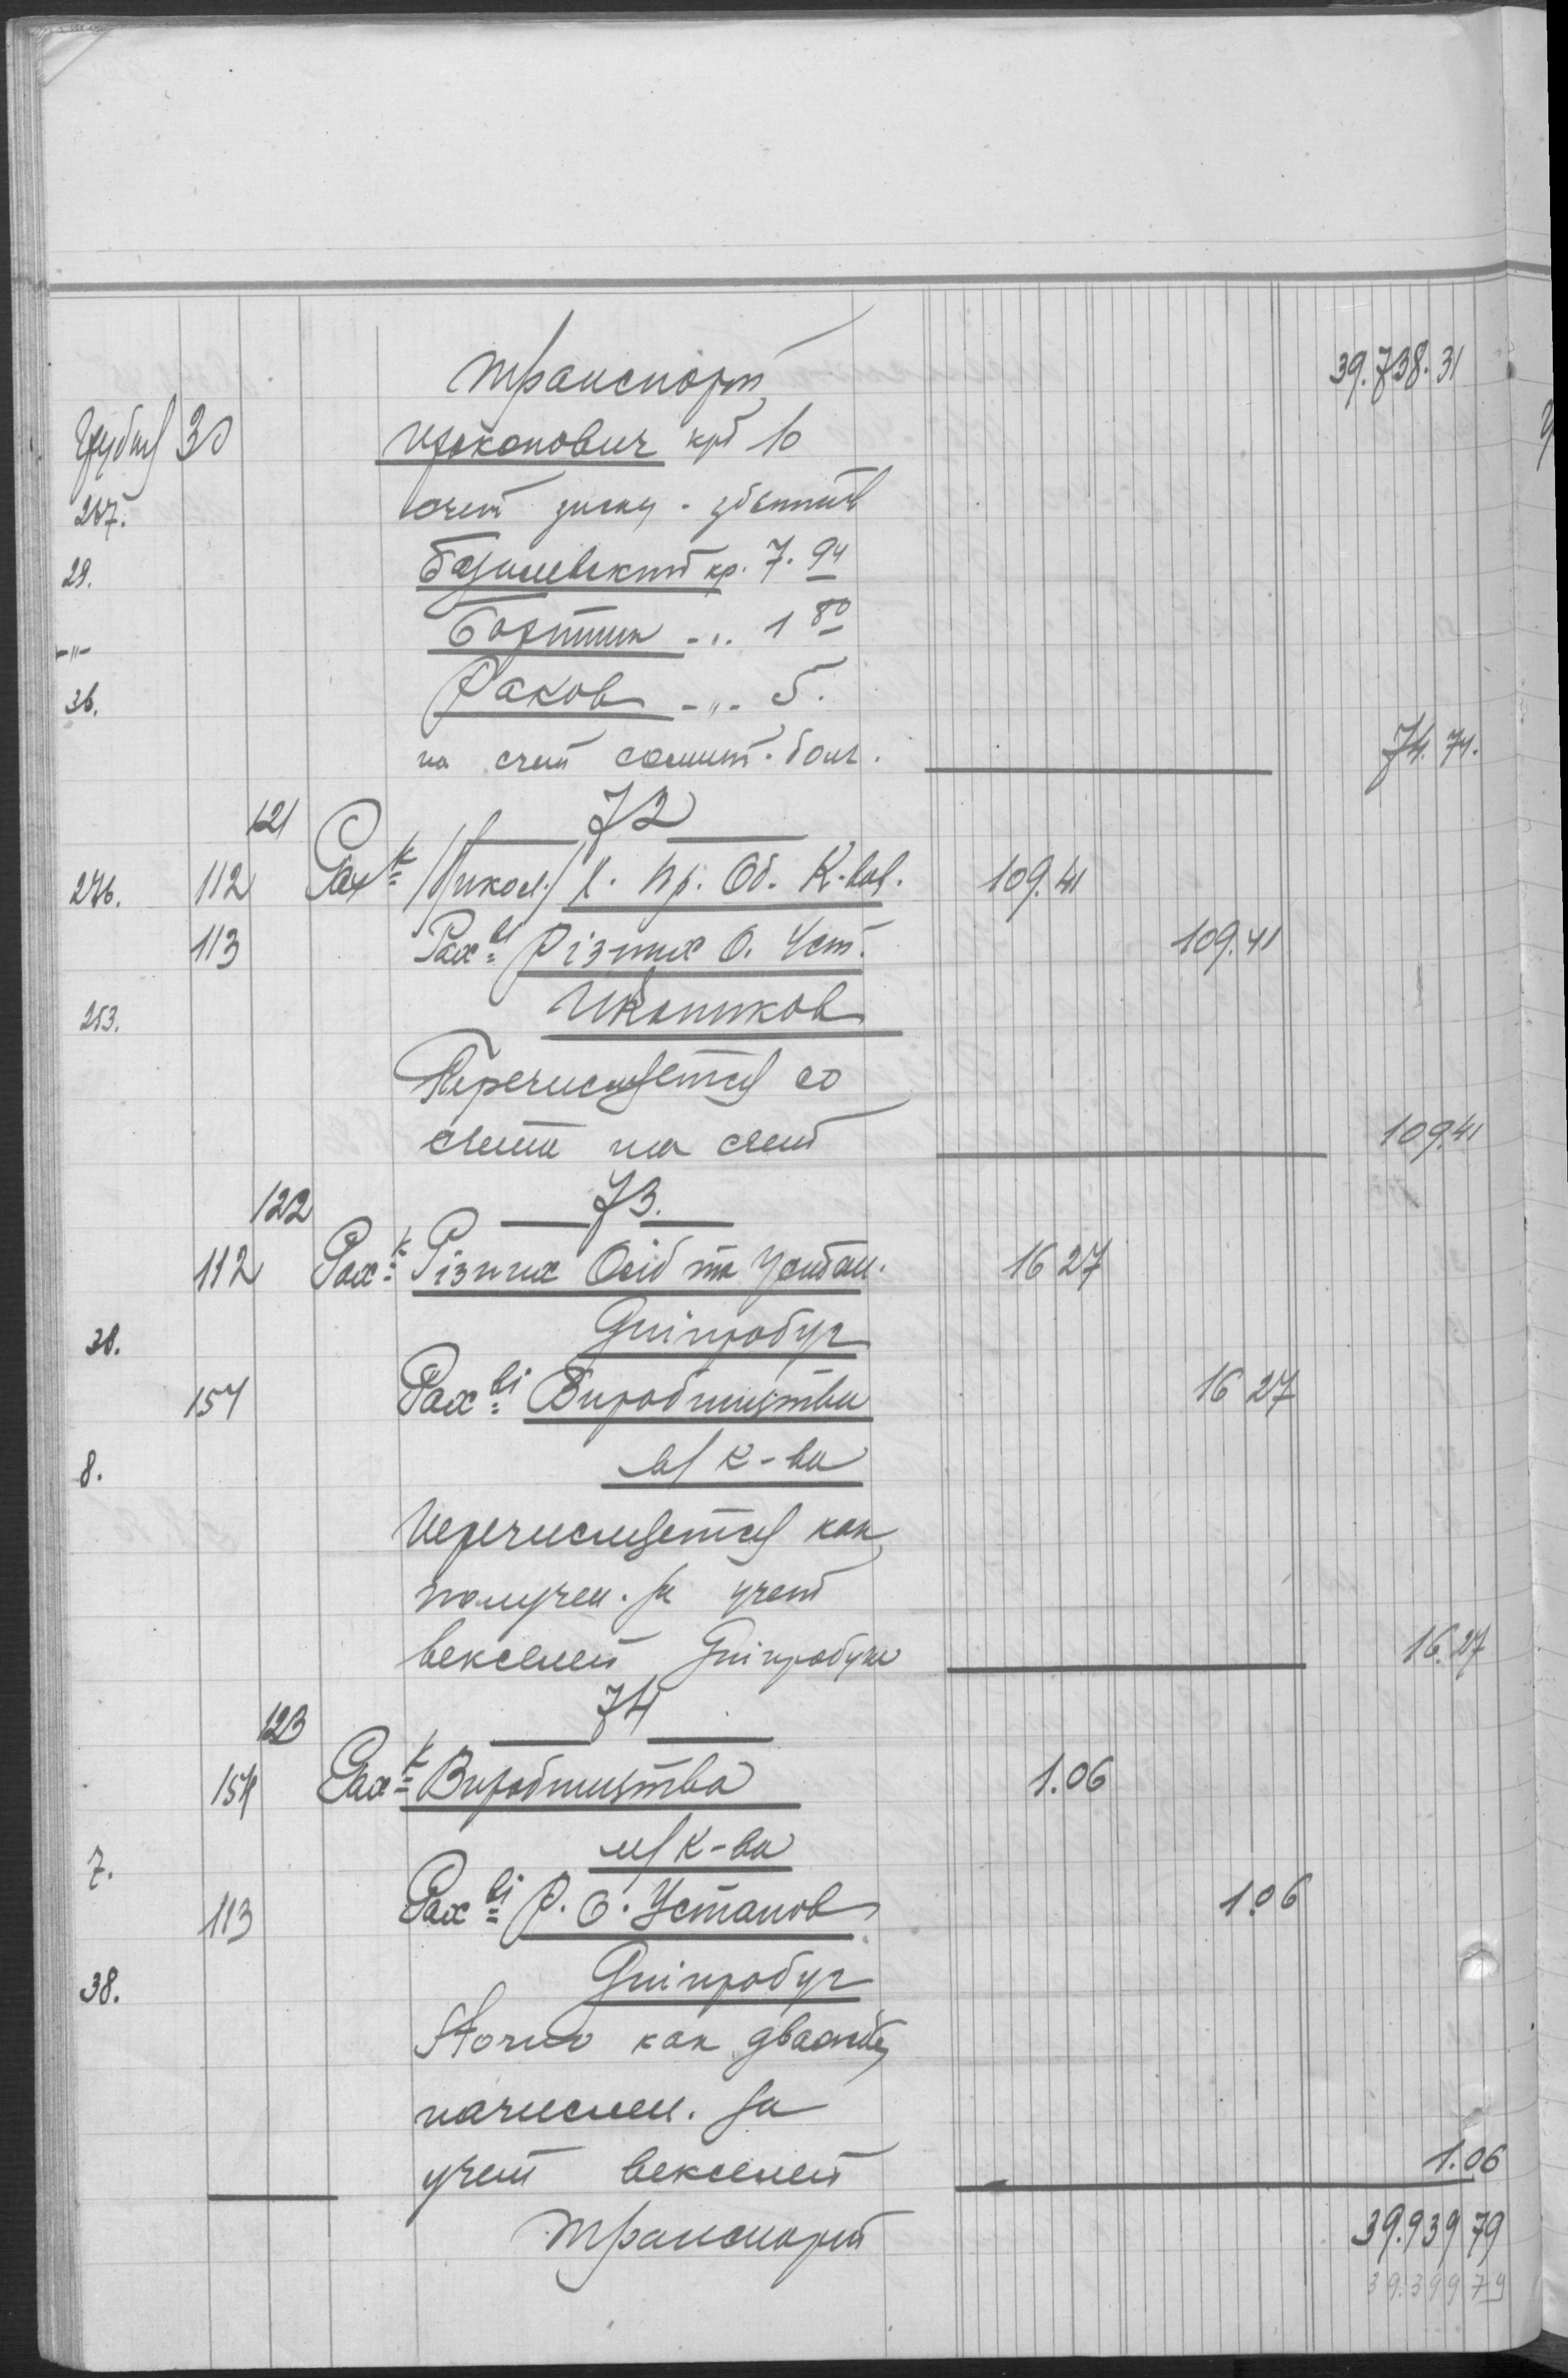 Транспорт 39.738.31
30 Прокопович крд 10
257. счет
29. Базилевский кр. 7.94
-"- Бортник -"- 1 80
36. Раков -"- 5.
на счет 74.74.
121 72
276. 112 Рах-к Об. К-вах. 109.41
113 Рах-ві Різних О. Уст. 109.41
253. Иконников
Перечисляется со
счета на счет 109.41
122 73.
112 Рах-к Різних Осіб та Устан. 16 27
38. Дніпробуг
154 Рах-ві Виробництва 16 27
8. м/к-ва
Перечисляется как
получен. за учет
векселей Дніпробуга 16.27
123 74
154 Рах-к Виробництва 1.06
7. м/к-ва
113 Рах-ві Р. О. Установ 1.06
38. Дніпробуг
Storno как дважды
начислен. за
учет векселей 1.06
Транспорт 39.939 79
39.399 79